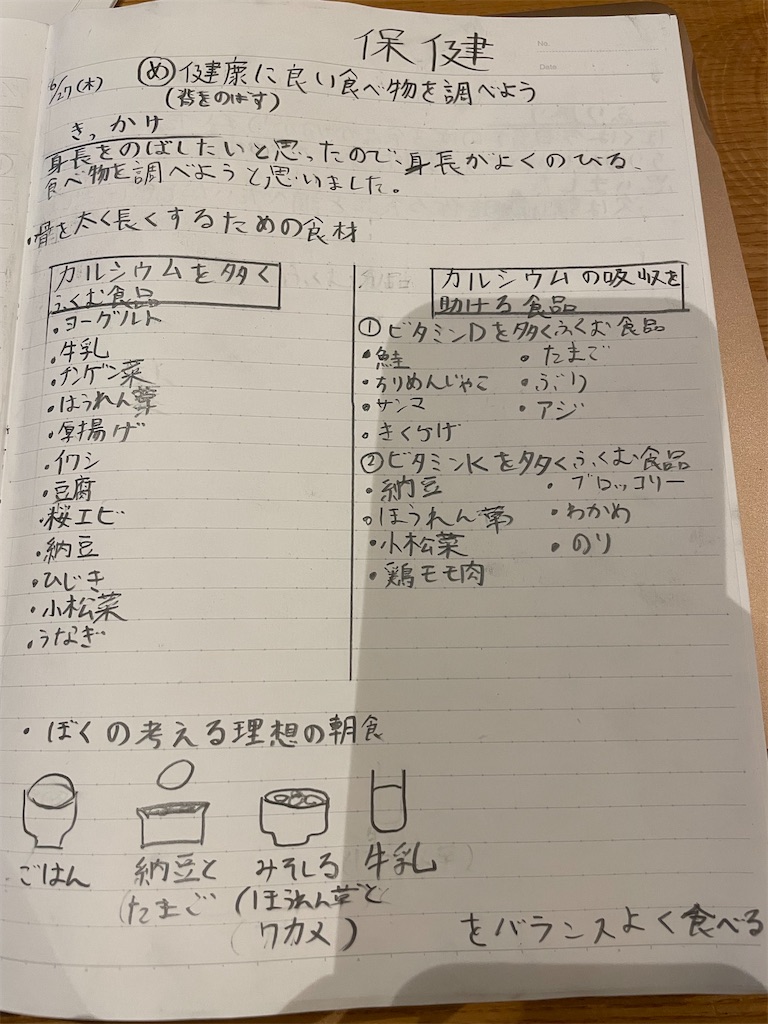 保健
No.
Date
6/27(木)
め 健康に良い食べ物を調べよう
(背をのばす)
きっかけ
身長をのばしたいと思ったので、身長がよくのびる、
食べ物を調べようと思いました。
・骨を太く長くするための食材
カルシウムを多く
ふくむ食品
・ヨーグルト
・牛乳
・チンゲン菜
・ほうれん草
・厚揚げ
・イワシ
・豆腐
・桜エビ
・納豆
・ひじき
・小松菜
・うなぎ
カルシウムの吸収を
助ける食品
① ビタミンDを多くふくむ食品
・鮭 ・たまご
・ちりめんじゃこ ・ぶり
・サンマ ・アジ
・きくらげ
② ビタミンKを多くふくむ食品
・納豆 ・ブロッコリー
・ほうれん草 ・わかめ
・小松菜 ・のり
・鶏モモ肉
・ぼくの考える理想の朝食
ごはん
納豆と
(たまご
みそしる
(ほうれん草と
ワカメ)
牛乳
をバランスよく食べる